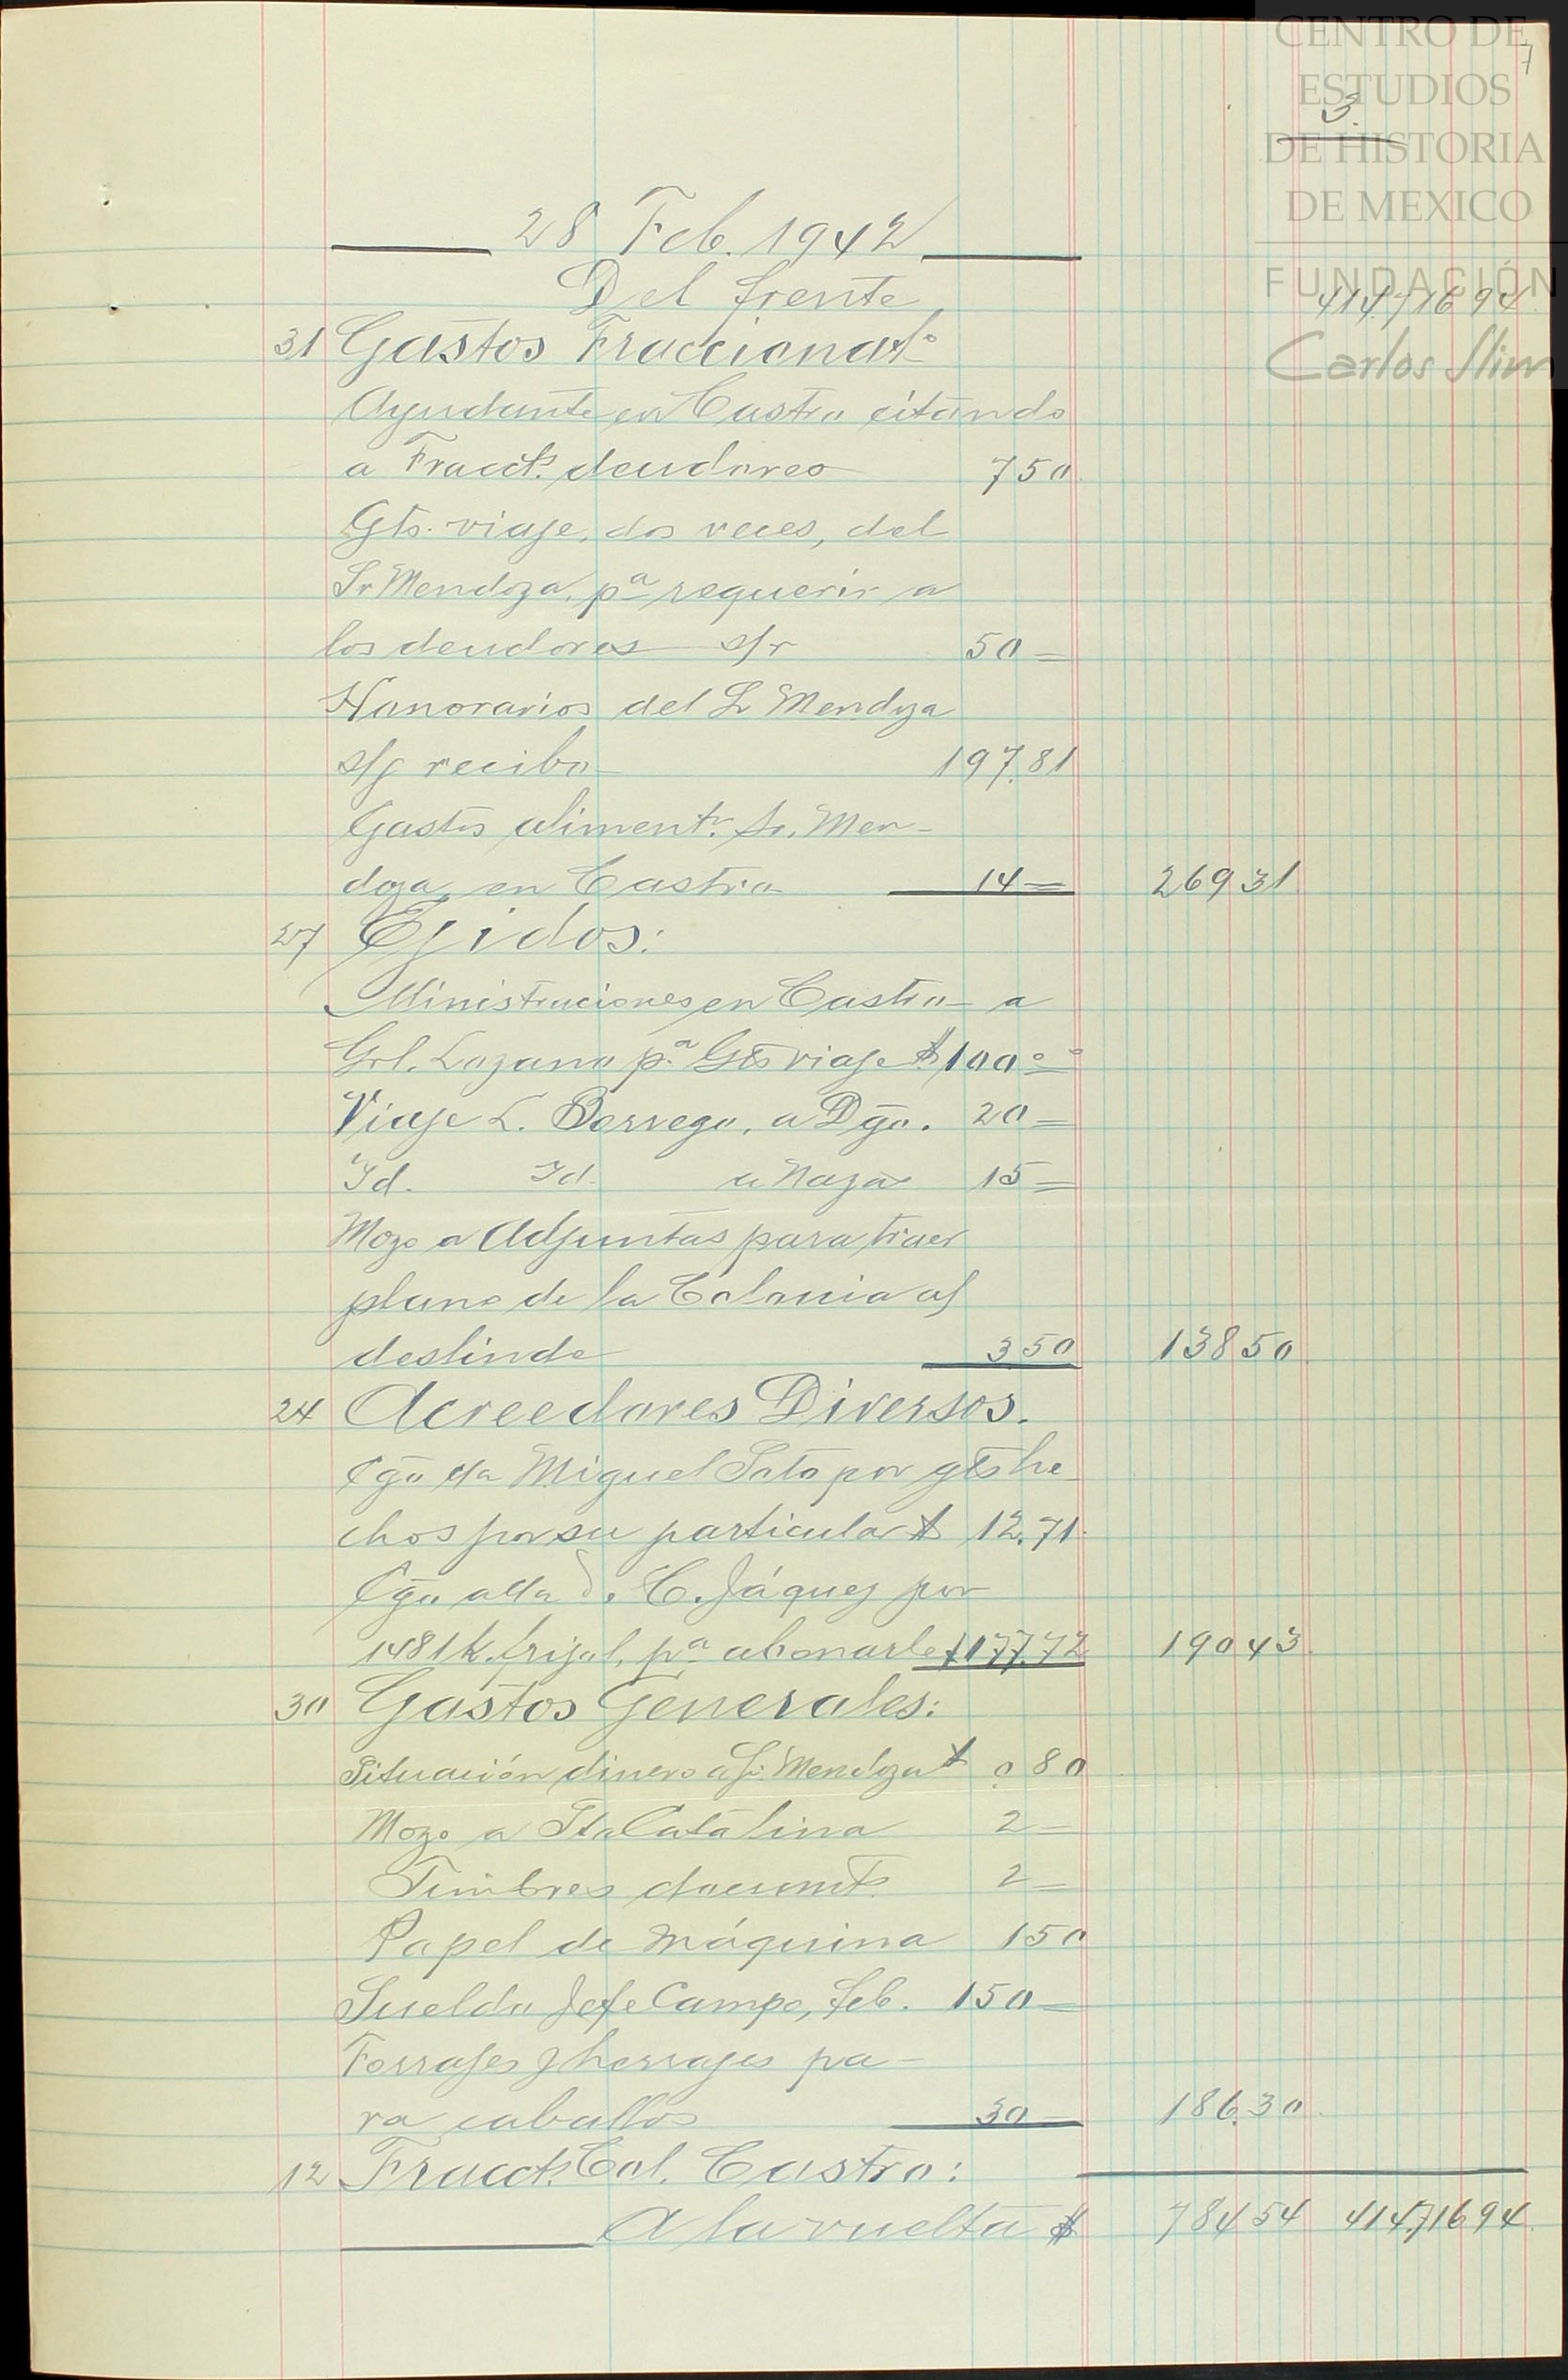 CENTRO DE
ESTUDIOS
DE HISTORIA
DE MEXICO
FUNDACIÓN
Carlos Slim
7
3.
28 Feb. 1942
Del frente 414,716 94
31 Gastos Fraccionat.º
Ayudante en Castro citando
a Fracct.s deudores 7 50
Gts. viaje, dos veces, del
Sr Mendoza, p.a requerir a
los deudores s/r 50 =
Honorarios del Sr Mendoza
s/g recibo 197.81
Gastos aliment.s Sr. Men-
doza en Castro 14 = 269 31
27 Ejidos:
Ministraciones en Castro a
Grl. Lozano p.a Gts viaje $ 100 oo
Viaje L. Borrego, a Dgo. 20 =
Id. Id. a Nazas 15 =
Mozo a Adjuntas para traer
plano de la Colonia
deslinde 3 50 138 50
24 Acreedores Diversos.
Miguel Soto por gts he-
chos por su particular $ 12.71
C. Jáquez por
1481 k. frijol, p.a abonarle $ 177.72 190 43
30 Gastos Generales:
Situación dinero a Sr. Mendoza $ 0 80
Mozo a Sta Catalina 2 =
Timbres document.s 2 =
Papel de máquina 1 50
Sueldo Jefe Campo, feb. 150 =
Forrajes y herrajes pa-
ra caballos 30 = 186.30
12 Fracct.s Col. Castro:
A la vuelta $ 784 54 414,716 94